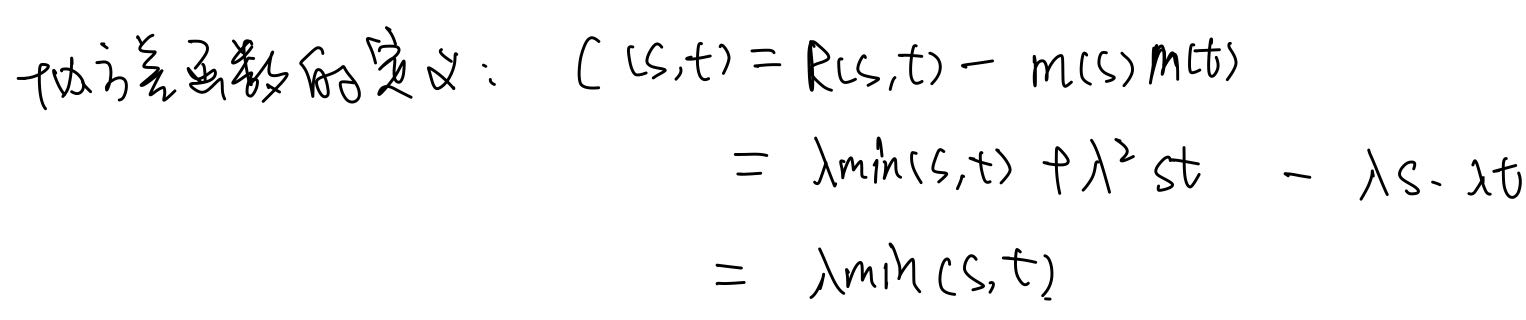 协方差函数的定义： C(s,t) = R(s,t) - m(s)m(t)
= λmin(s,t) + λ² st - λs · λt
= λmin(s,t)